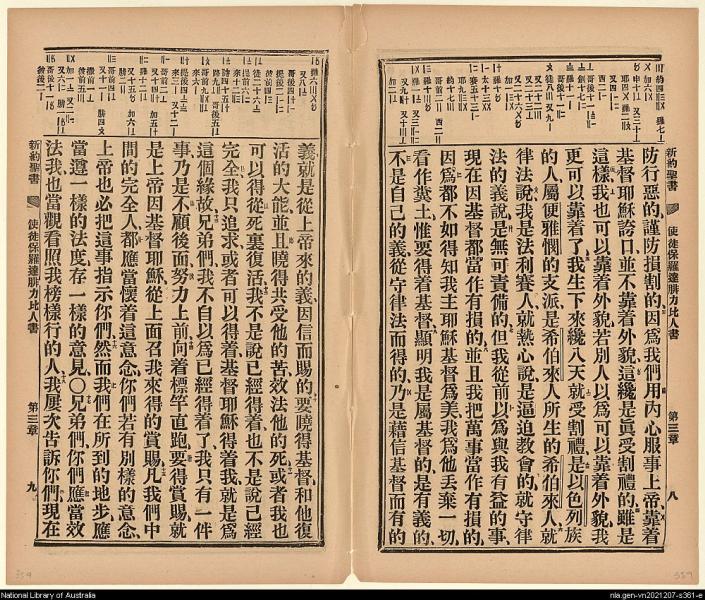 新約聖書
使徒保羅達腓力比人書
第三章
八
防行惡的謹防損割的因為我們用內心服事上帝靠着
基督耶穌誇口並不靠着外貌這纔是眞受割禮的雖是
這樣我也可以靠着外貌若別人以為可以靠着外貌我
更可以靠着了我生下來纔八天就受割禮是以色列族
的人屬便雅憫的支派是希伯來人所生的希伯來人就
律法說我是法利賽人就熱心說是逼迫教會的就守律
法的義說是無可責備的但我從前以為與我有益的事
現在因基督都當作有損的並且我把萬事當作有損的
因為都不如得知我主耶穌基督為美我為他丟棄一切
看作糞土惟要得着基督顯明我是屬基督的是有義的
不是自己的義從守律法而得的乃是藉信基督而有的
義就是從上帝來的義因信而賜的要曉得基督和他復
活的大能並且曉得共受他的苦效法他的死或者我也
可以得從死裏復活我不是說已經得着也不是說已經
完全我只追求或者可以得着基督耶穌得着我就是為
這個緣故兄弟們我不自以為已經得着了我只有一件
事乃是不顧後面努力上前向着標竿直跑要得賞賜就
是上帝因基督耶穌從上面召我來得的賞賜凡我們中
間的完全人都應當懷着這意念你們若有別樣的意念
上帝也必把這事指示你們然而我們在所到的地步應
當遵一樣的法度存一樣的意見〇兄弟們你們應當效
法我也當觀看照我榜樣行的人我屢次告訴你們現在
新約聖書
使徒保羅達腓力比人書
第三章
九
359
359
National Library of Australia
nla.gen-vn2021207-s361-e